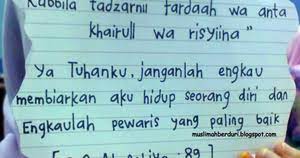 Rabbila tadzarnii fardaah wa anta
khairull wa risyiina"
Ya Tuhanku, janganlah engkau
membiarkan aku hidup seorang diri dan
Engkaulah pewaris yang paling baik
muslimahberduri.blogspot.com
: 89]